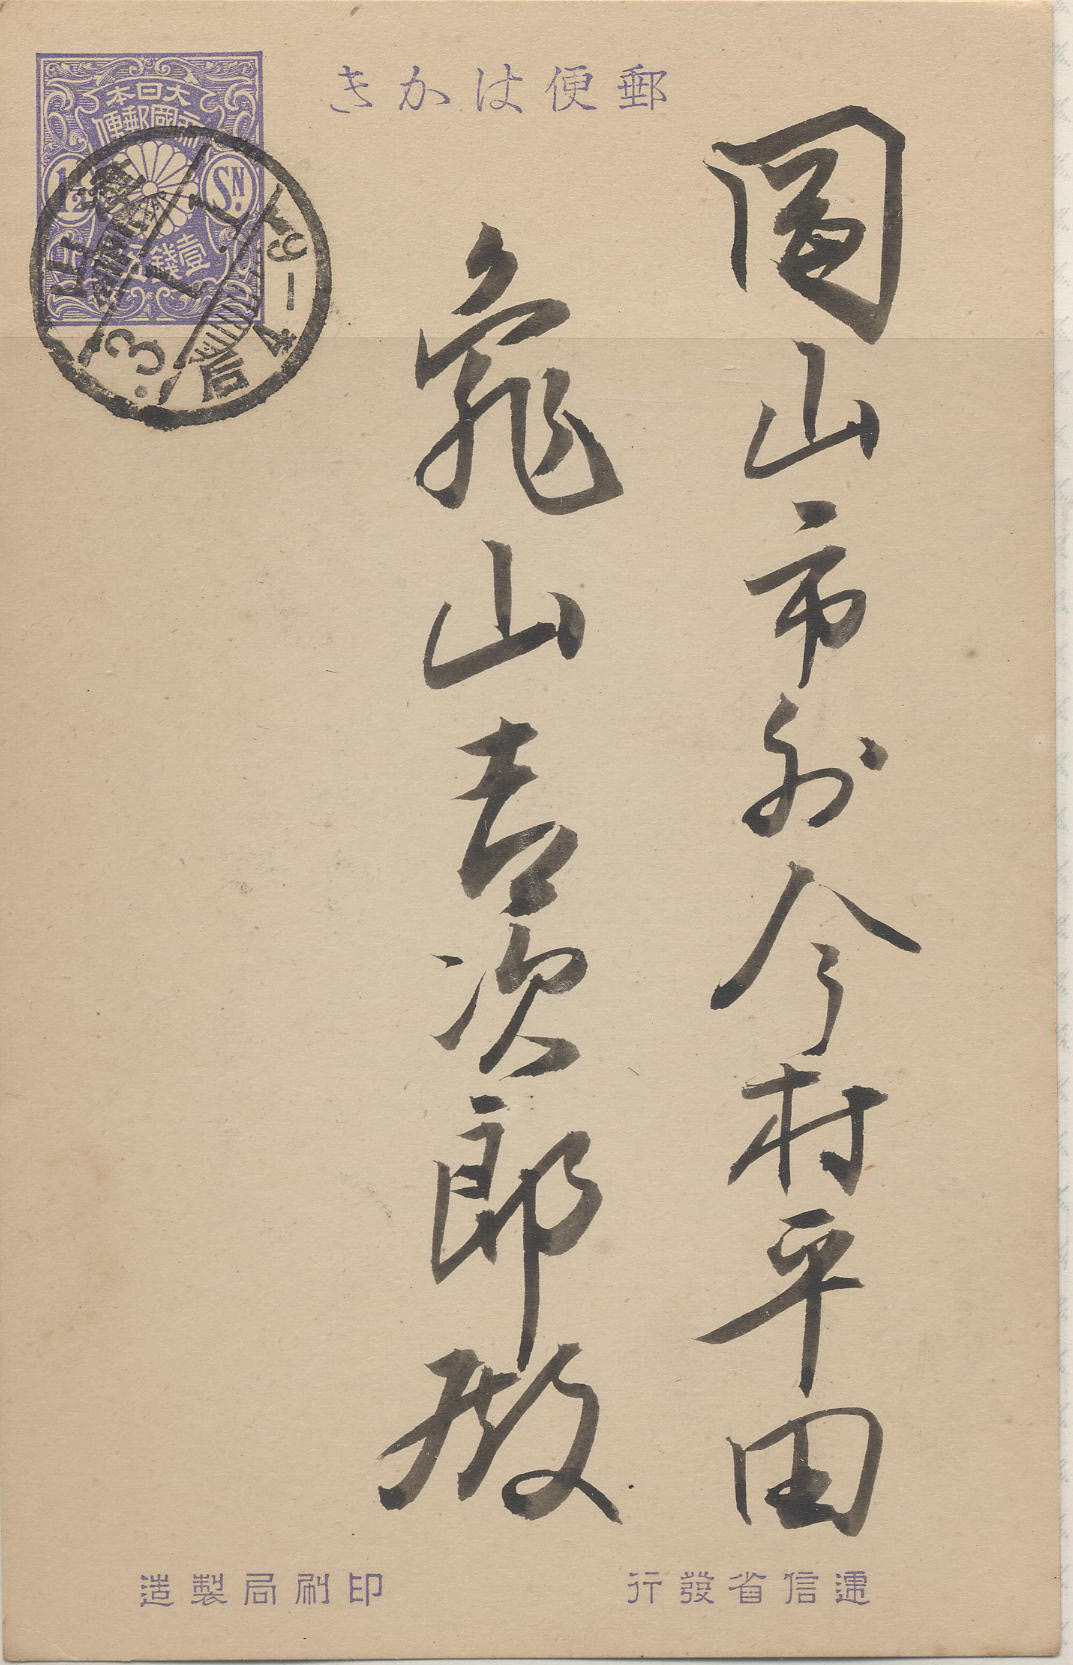 郵便はかき
大日本
帝國郵便
1½
SN.
壹錢五
3. 1. 1
后 4-6
岡山市外今村平田
亀山吉次郎殿
逓信省發行
印刷局製造